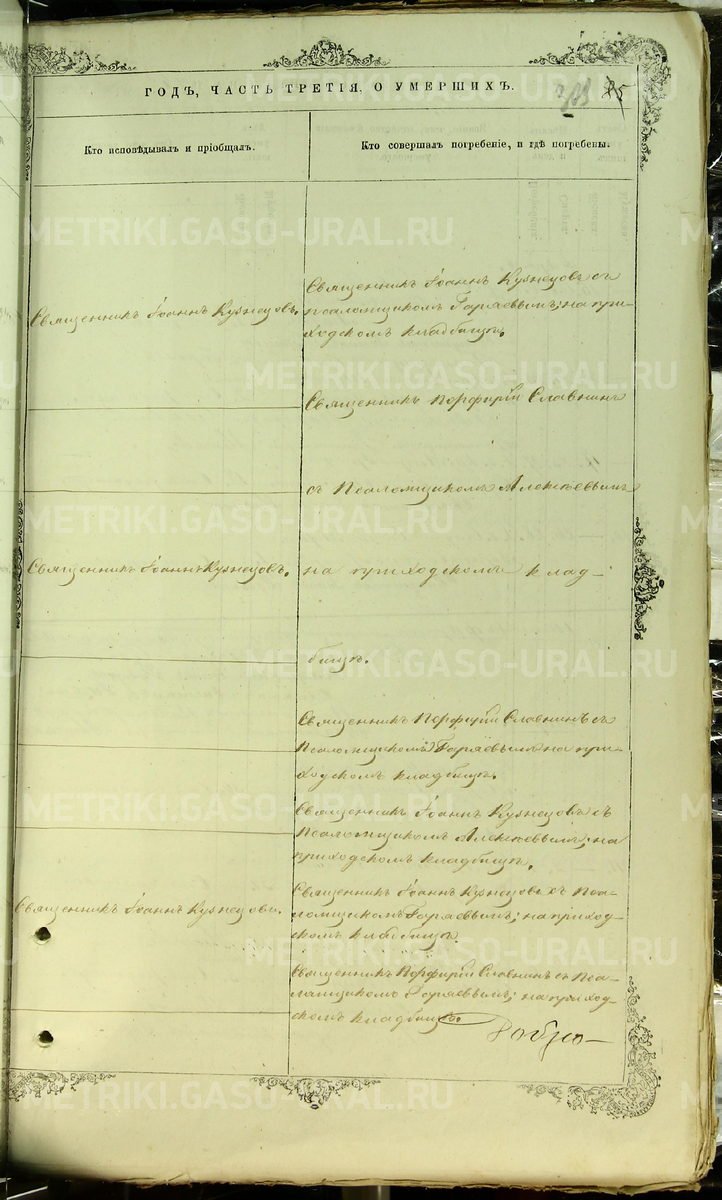 ГОДЪ, ЧАСТЬ ТРЕТІЯ, О УМЕРШИХЪ.
85
Кто исповѣдывалъ и пріобщалъ.
Кто совершалъ погребеніе, и гдѣ погребены.
Священникъ Іоаннъ Кузнецовъ.
Священникъ Іоаннъ Кузнецовъ съ
псаломщикомъ Горяевымъ; на при-
ходскомъ кладбищѣ.
Священникъ Порфирій Славнинъ
съ Псаломщикомъ Алексѣевымъ
Священникъ Іоаннъ Кузнецовъ.
на приходскомъ клад-
бищѣ.
Священникъ Порфирій Славнинъ съ
Псаломщикомъ Горяевымъ на при-
ходскомъ кладбищѣ.
Священникъ Іоаннъ Кузнецовъ съ
Псаломщикомъ Алексѣевымъ; на
приходскомъ кладбищѣ.
Священникъ Іоаннъ Кузнецовъ.
Священникъ Іоаннъ Кузнецовъ съ Пса-
ломщикомъ Горяевымъ; на приход-
скомъ кладбищѣ.
Священникъ Порфирій Славнинъ съ Пса-
ломщикомъ Горяевымъ; на приход-
скомъ кладбищѣ.
METRIKI.GASO-URAL.RU